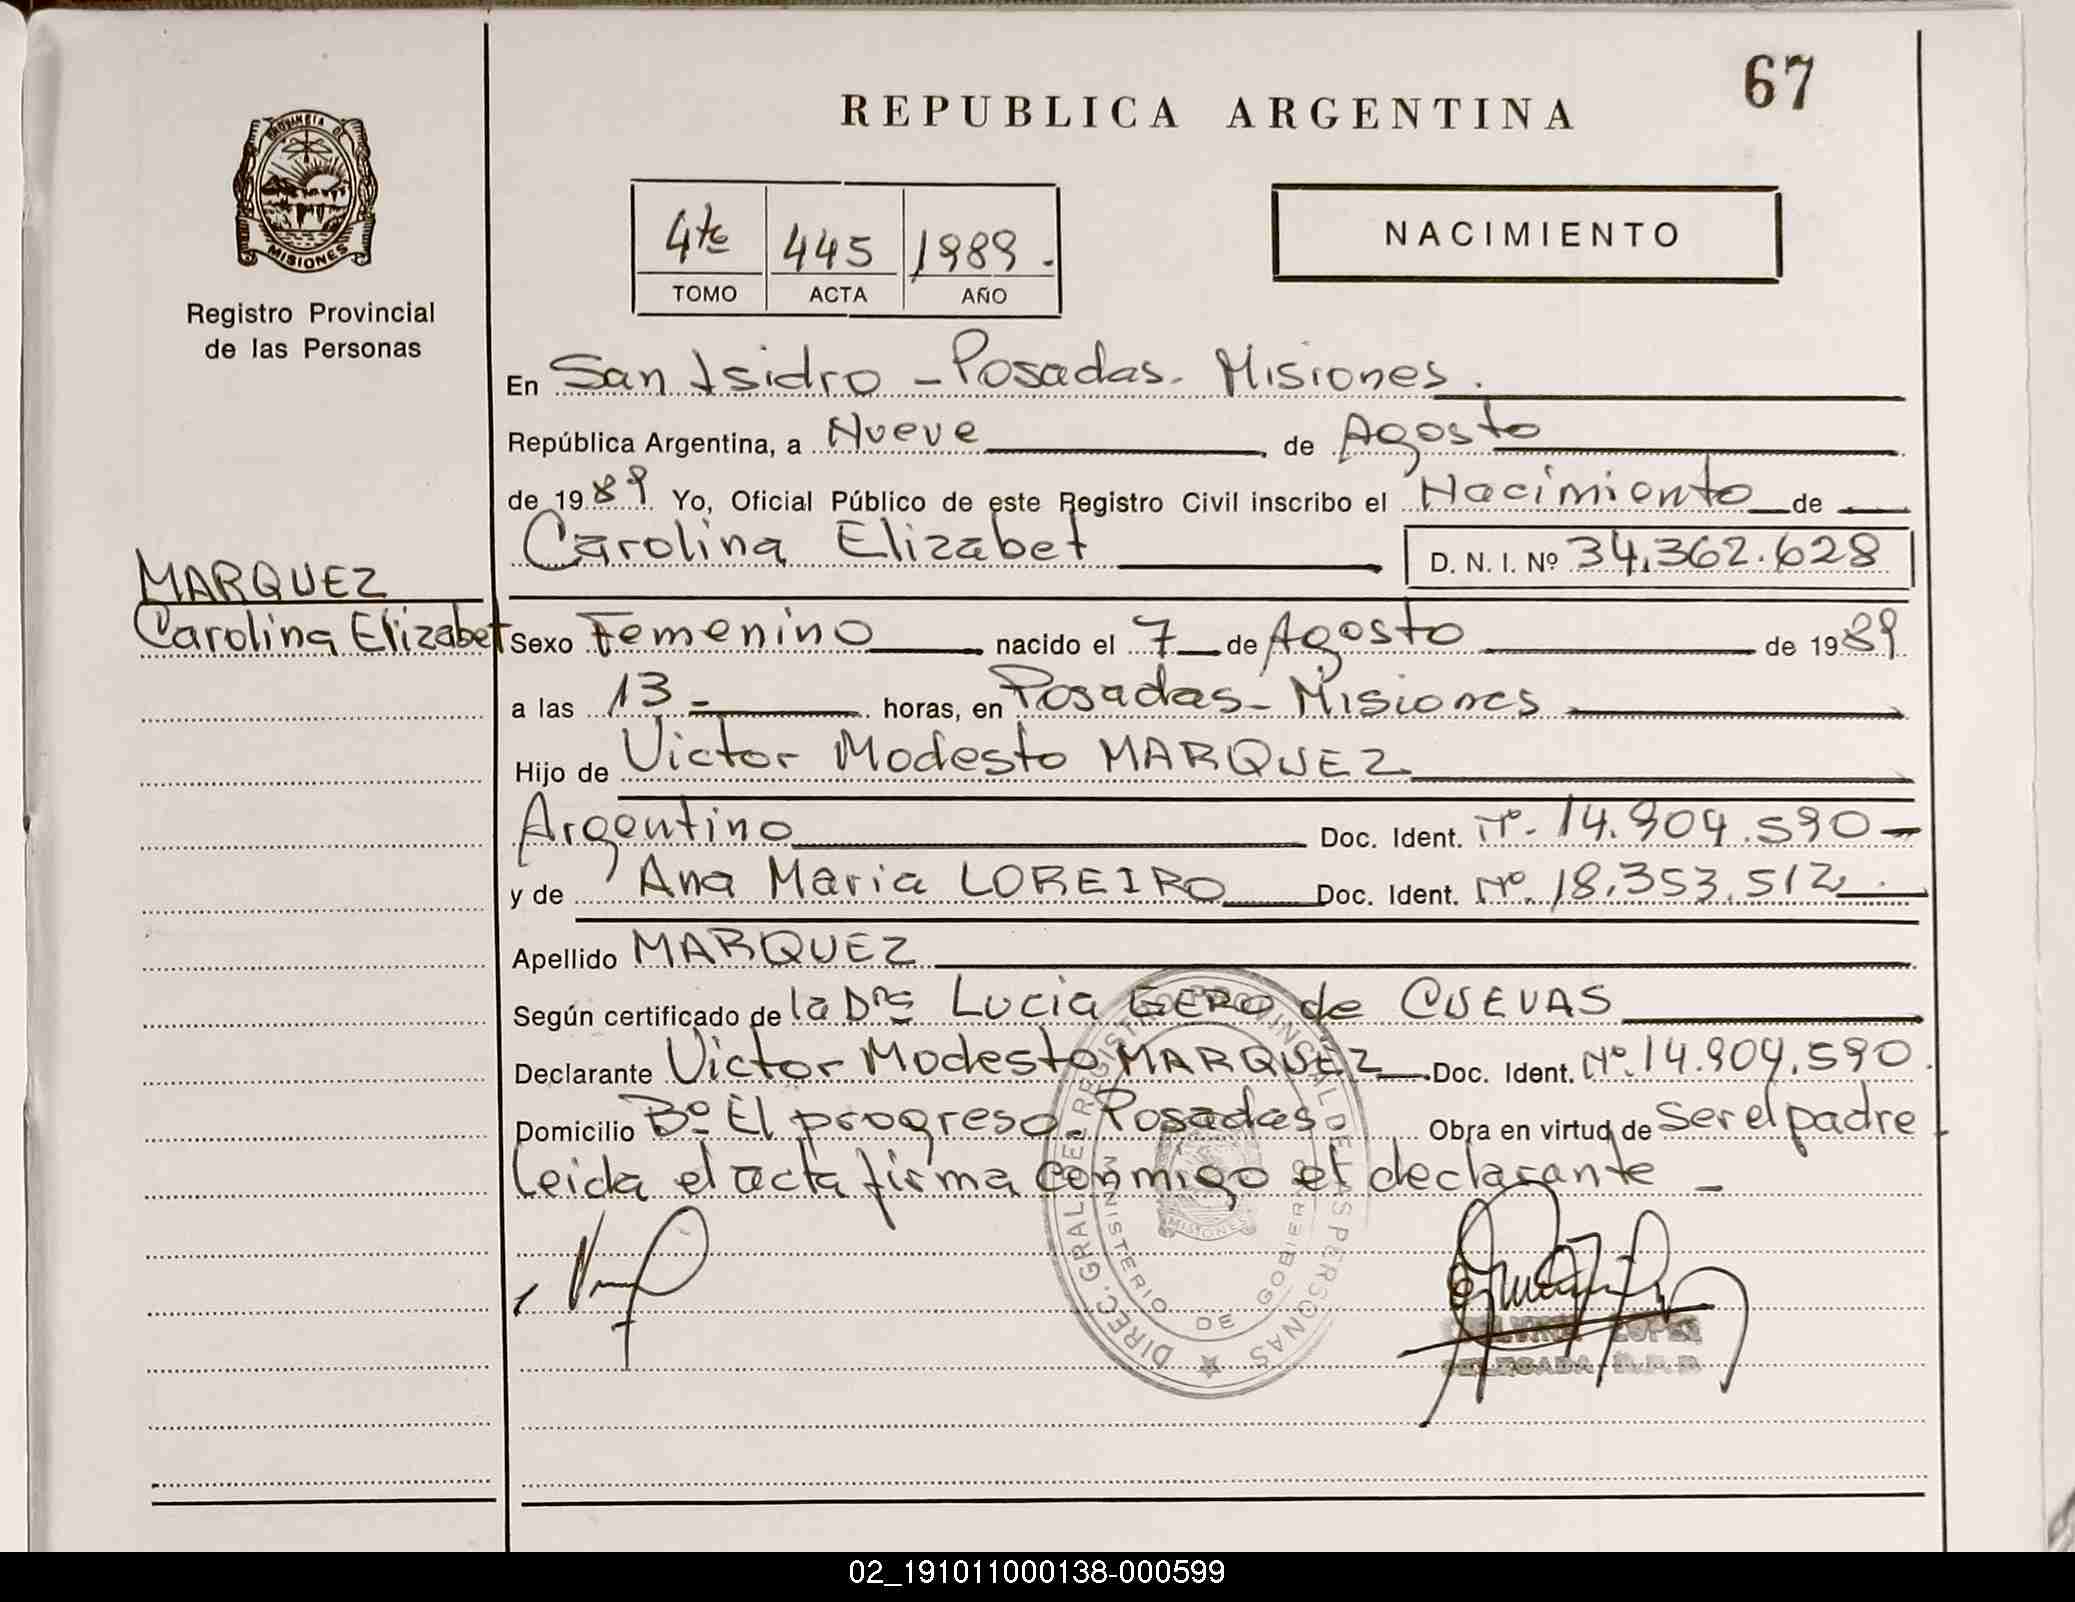 67
REPUBLICA ARGENTINA
PROVINCIA DE
MISIONES
Registro Provincial
de las Personas
4to 445 1989.
TOMO ACTA AÑO
NACIMIENTO
En San Isidro - Posadas. Misiones.
República Argentina, a Nueve, de Agosto
de 1989 Yo, Oficial Público de este Registro Civil inscribo el Nacimiento de
Carolina Elizabet D. N. I. Nº 34.362.628
MARQUEZ
Carolina Elizabet
Sexo Femenino nacido el 7 de Agosto de 1989
a las 13 - horas, en Posadas - Misiones
Hijo de Victor Modesto MARQUEZ
Argentino Doc. Ident. Nº. 14.904.590
y de Ana Maria LOREIRO Doc. Ident. Nº. 18.353.512
Apellido MARQUEZ
Según certificado de la Dra Lucia GERO de CUEVAS
Declarante Victor Modesto MARQUEZ Doc. Ident. Nº. 14.904.590.
Domicilio Bº El progreso. Posadas. Obra en virtud de Ser el padre
Leida el acta firma conmigo el declarante -
DIREC. GRAL. DEL REGISTRO PROVINCIAL DE LAS PERSONAS
MINISTERIO DE GOBIERNO
MISIONES
LOPEZ
DELEGADA R.P.P
02_191011000138-000599